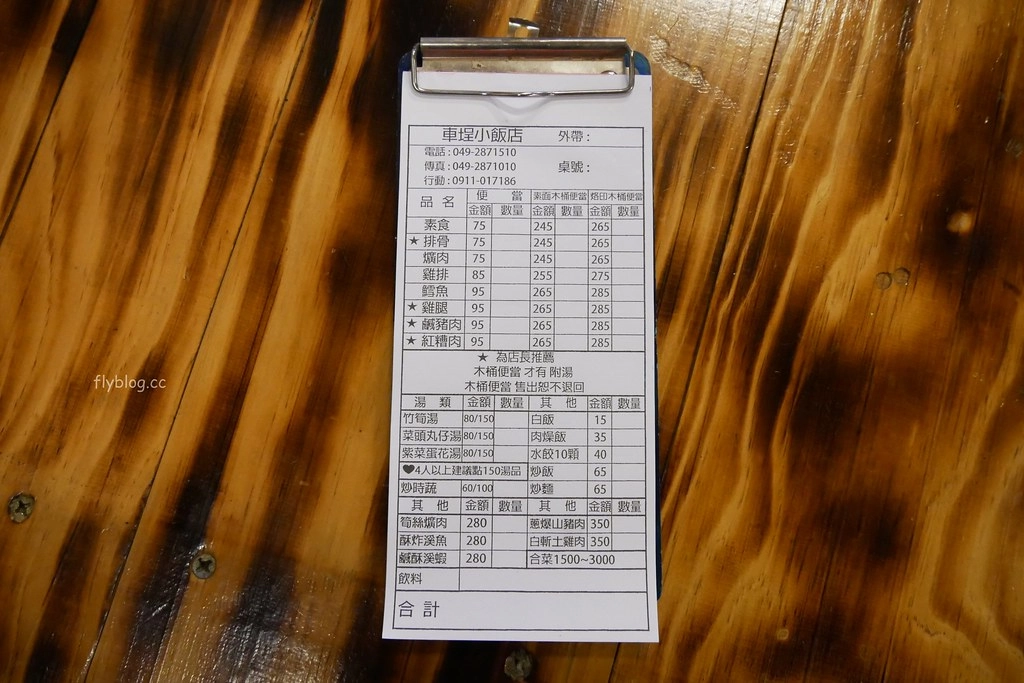 車埕小飯店 外帶:
電話:049-2871510
傳真:049-2871010 桌號:
行動:0911-017186
品名 便當 素面木桶便當 烙印木桶便當
金額 數量 金額 數量 金額 數量
素食 75 245 265
★ 排骨 75 245 265
爌肉 75 245 265
雞排 85 255 275
鱈魚 95 265 285
★ 雞腿 95 265 285
★ 鹹豬肉 95 265 285
★ 紅糟肉 95 265 285
★ 為店長推薦
木桶便當 才有 附湯
木桶便當 售出恕不退回
湯類 金額 數量 其他 金額 數量
竹筍湯 80/150 白飯 15
菜頭丸仔湯 80/150 肉燥飯 35
紫菜蛋花湯 80/150 水餃10顆 40
♥4人以上建議點150湯品 炒飯 65
炒時蔬 60/100 炒麵 65
其他 金額 數量 其他 金額 數量
筍絲爌肉 280 蔥爆山豬肉 350
酥炸溪魚 280 白斬土雞肉 350
鹹酥溪蝦 280 合菜1500~3000
飲料
合計
flyblog.cc